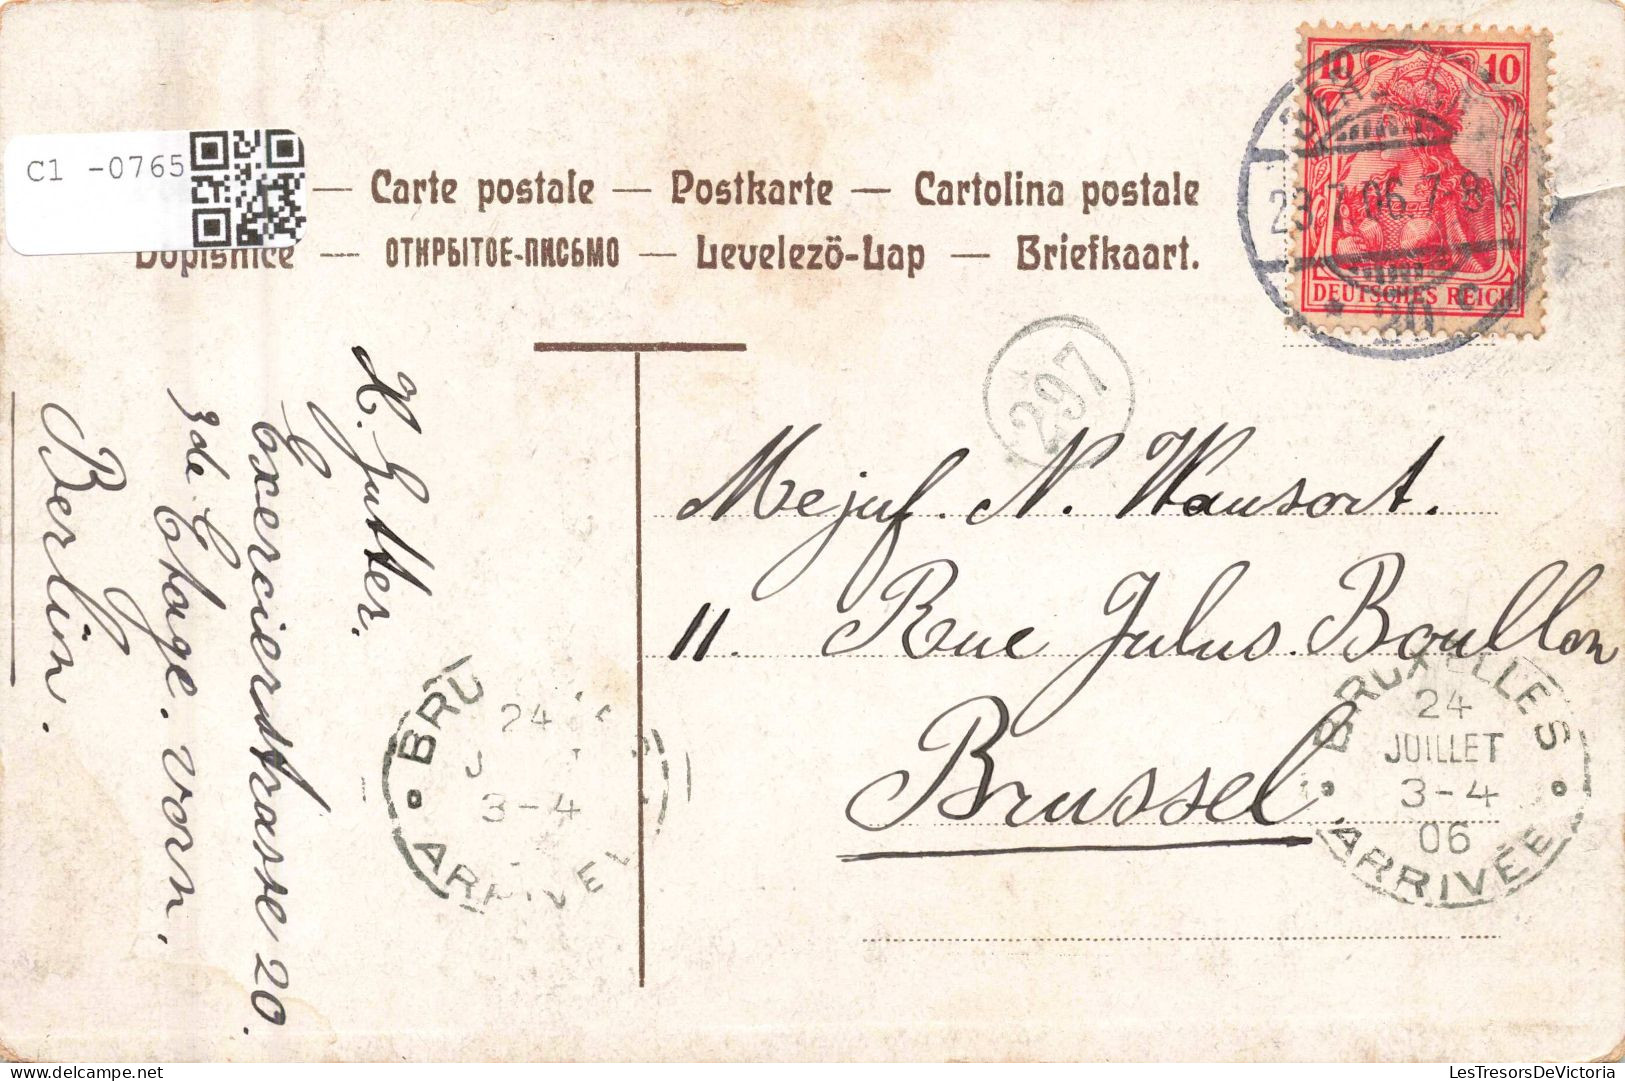 C1 -0765
— Carte postale — Postkarte — Cartolina postale
Dopisnice — ОТКРЫТОЕ-ПИСЬМО — Levelezö-Lap — Briefkaart.
10 10
DEUTSCHES REICH
23.7.06.7-8V.
297
Mejuf. N. Wansort.
11. Rue Julus Boullon
Brussel
BRUXELLES
24
JUILLET
3-4
06
ARRIVÉE
BRU
24
J
3-4
ARRIVE
K. Gutter.
Exercierstrasse 20.
3de Etage. vorn.
Berlin.
delcampe.net
LesTresorsDeVictoria